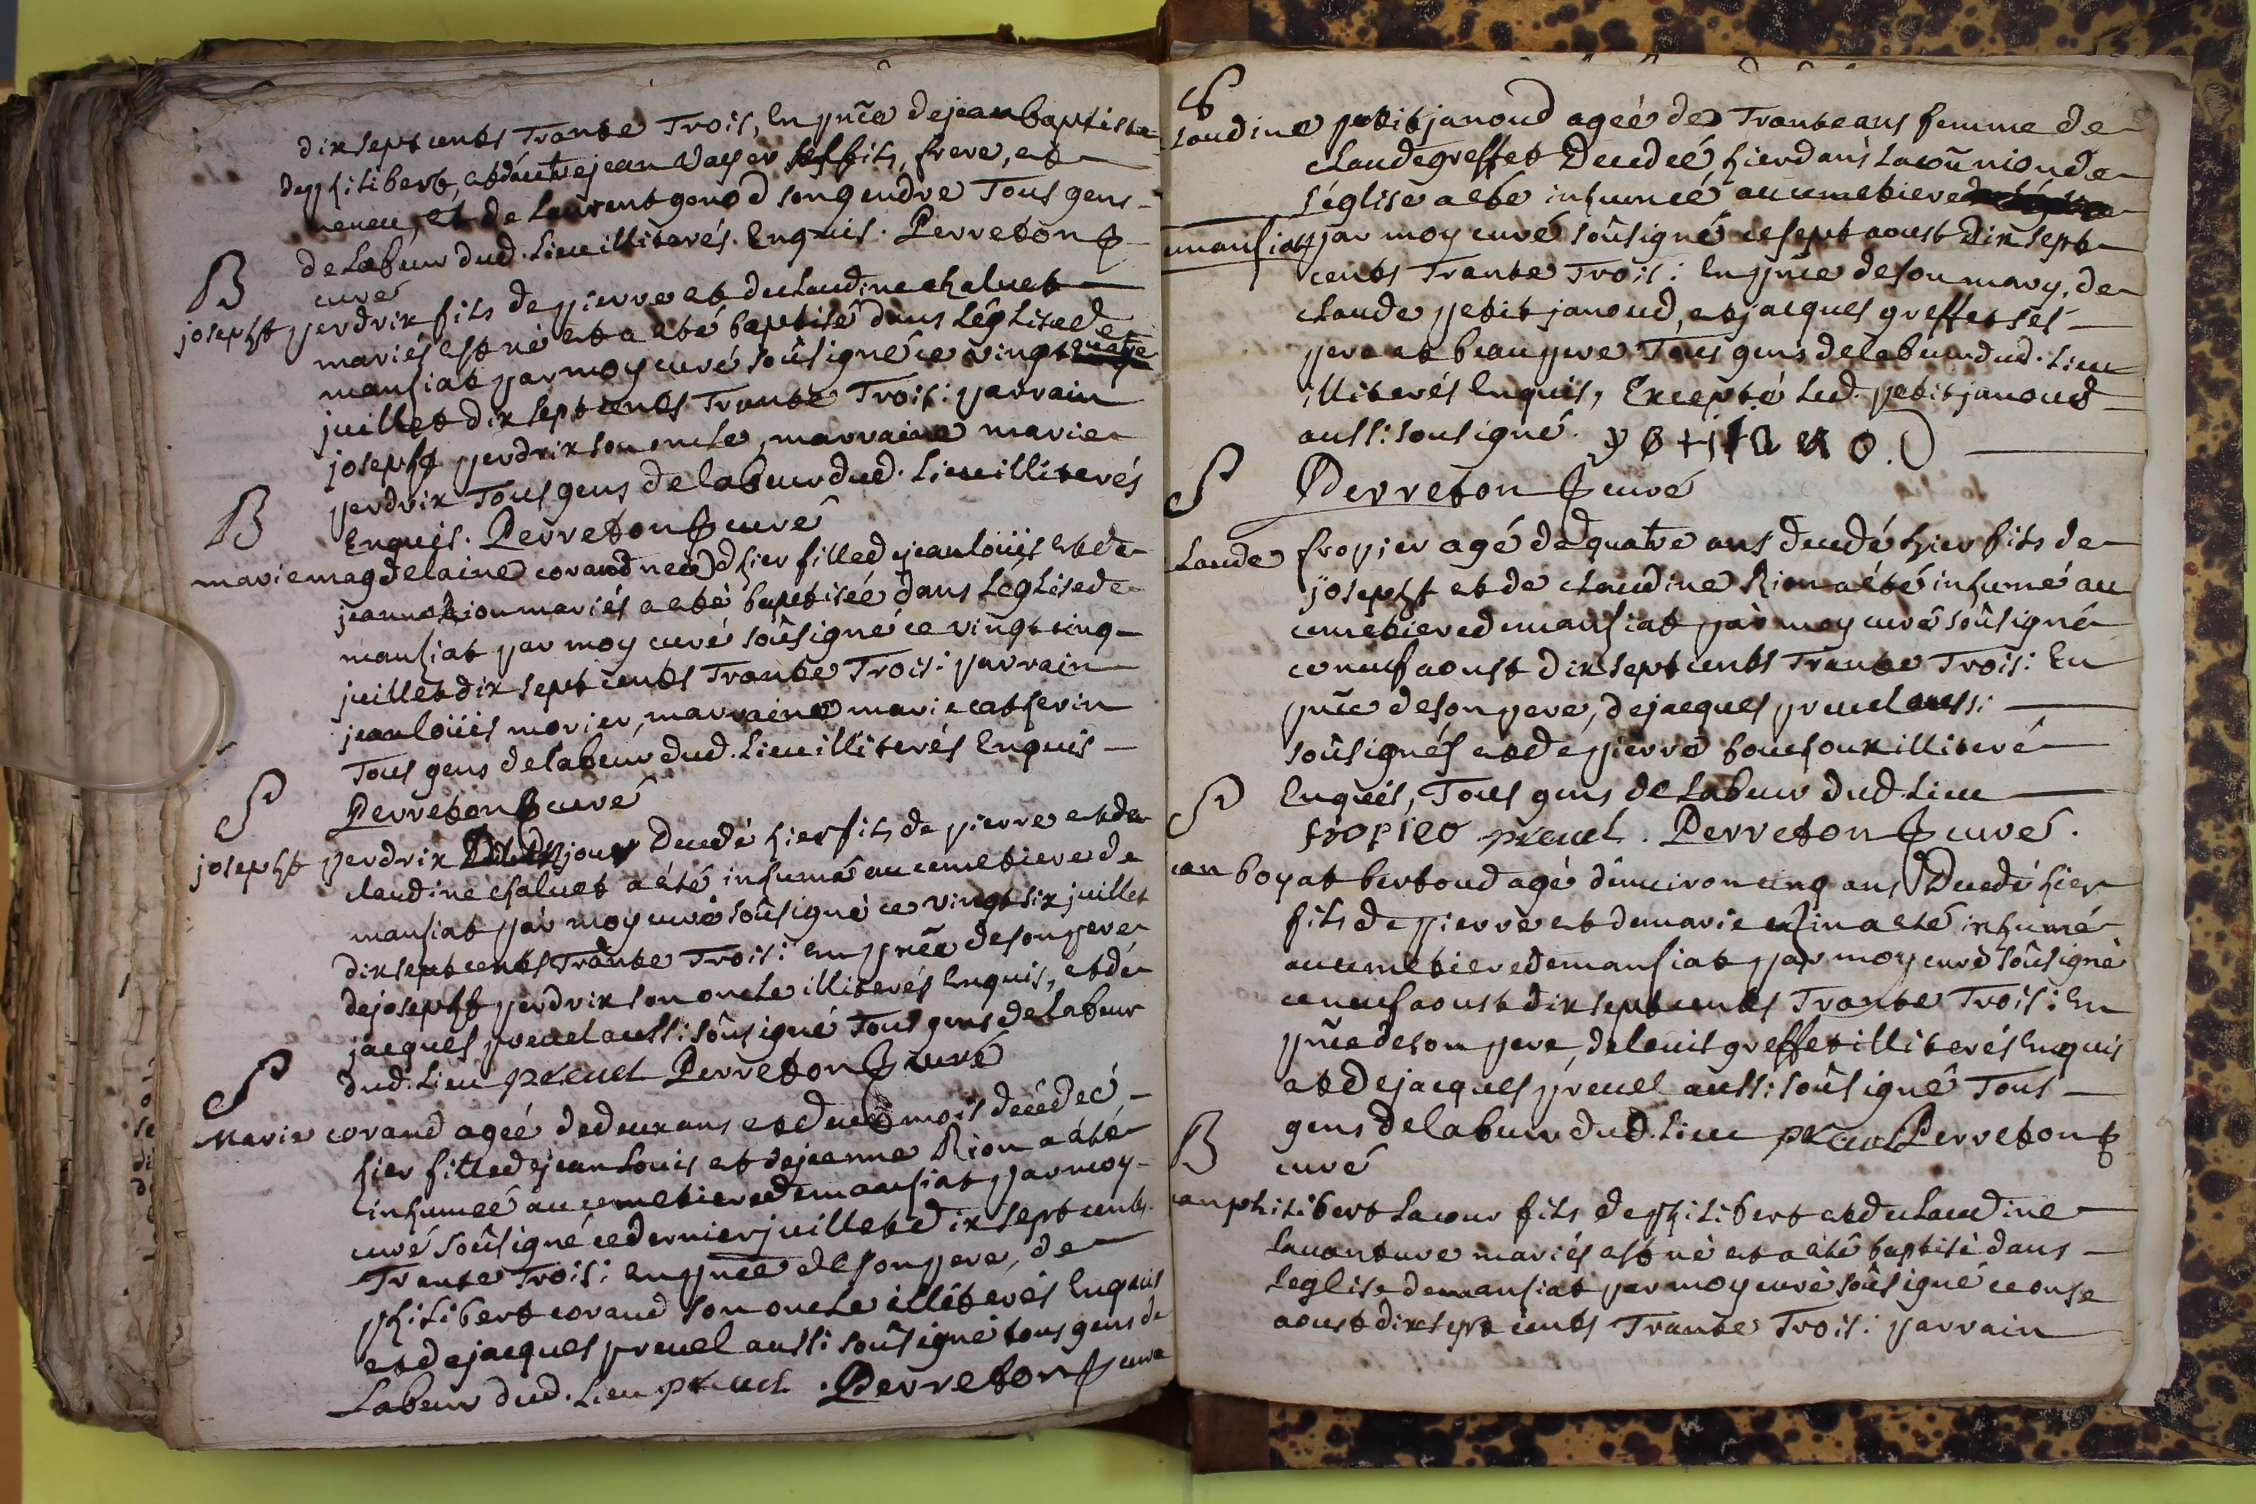 dix sept cents Trante Trois, En pñce de jean baptiste
de philibert, et d'autre jean Vayer ses fils, frere, et
neveu, et de Laurent gonod son gendre Tous gens
de Labeur dud. Lieu illiterés. Enquis. Perreton p
curé
B
joseph perdrix fils de pierre et de claudine chaluet
mariés est né et a eté baptisé dans L'église de
mansiat par moy curé soûsigné ce vingt quatre
juillet dix sept cents Trante Trois: parrain
joseph perdrix son oncle, marraine marie
perdrix Tous gens de labeur dud. Lieu illiterés
Enquis. Perreton p curé
B
marie magdelaine corand neé d'hier fille de jean loüis et de
jeanne Rion mariés a eté baptisée dans L'église de
mansiat par moy curé soûsigné ce vingt cinq
juillet dix sept cents Trante Trois: parrain
jean loüis morier, marraine marie catherin
Tous gens de labeur dud. Lieu illiterés Enquis
Perreton p curé
S
joseph perdrix jour Decedé hier fils de pierre et de
claudine chaluet a eté inhumé au cemetiere de
mansiat par moy curé soûsigné ce vingt six juillet
dix sept cents Trante Trois: en pñce de son pere
de joseph perdrix son oncle illiterés Enquis, et de
jacques preuel aussi soûsigné Tous gens de labeur
dud. Lieu preuel Perreton p curé
S
Marie corand ageé de deux ans et deux mois decedeé
hier fille de jean Louis et de jeanne Rion a eté
inhumeé au cemetiere de mansiat par moy
curé soûsigné ce dernier juillet dix sept cents
Trante Trois: En pñce de son pere, de
philibert corand son oncle illiterés Enquis
et de jacques preuel aussi soûsigné tous gens de
Labeur dud. Lieu preuel. Perreton p curé
S
laudine petitjanoud ageé de Trante ans femme de
claude greffet Decedeé hier dans la coûnion de
L'église a eté inhumeé au cemetiere
mansiat par moy curé soûsigné ce sept aoust Dix sept
cents Trante Trois: En pñce de son mary, de
claude petit janoud, et jacques greffet ses
pere et beau pere Tous gens de labeur dud. Lieu
illiterés Enquis, Excepté Led. petit janoud
aussi soûsigné.
Perreton p curé
S
laude fropier agé de quatre ans decedé hier fils de
joseph et de claudine Rion a eté inhumé au
cemetiere de mansiat par moy curé soûsigné
ce neuf aoust dix sept cents Trante Trois: En
pñce de son pere, de jacques preuel aussi
soûsignés et de pierre bouchoux illiteré
Enquis, Tous gens de Labeur dud. Lieu
fropier preuel. Perreton p curé.
S
ean boyat bertoud agé d'environ cinq ans Decedé hier
fils de pierre et de marie a eté inhumé
au cemetiere de mansiat par moy curé soûsigné
ce neuf aoust dix sept cents Trante Trois: En
pñce de son pere, de louis greffet illiterés Enquis
et de jacques preuel aussi soûsigné Tous
gens de labeur dud. Lieu preuel Perreton p
curé
B
ean philibert Lacour fils de philibert et de claudine
Lauanture mariés est né et a eté baptisé dans
L'eglise de mansiat par moy curé soûsigné ce onse
aoust dix sept cents Trante Trois: parrain